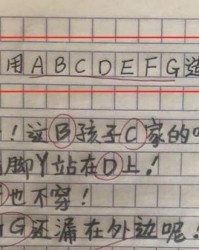 用ABCDEFG造
！这B孩子C家的
脚丫站在D上！
也不穿！
G还漏在外边呢！